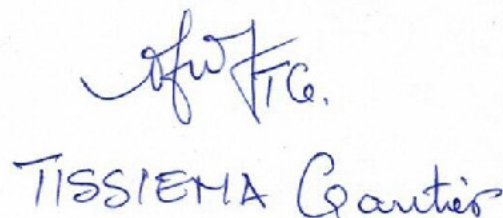 TG.
TISSIEMA Gautier